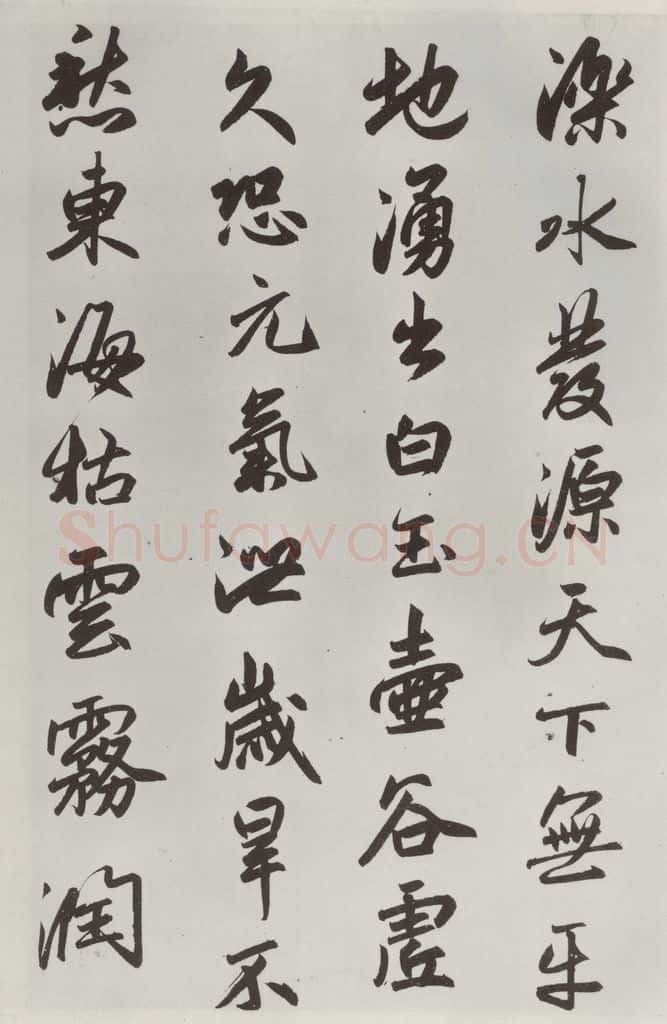 濼水發源天下無平
地湧出白玉壺谷虛
久恐元氣泄歲旱不
愁東海枯雲霧潤
Shufawang.CN